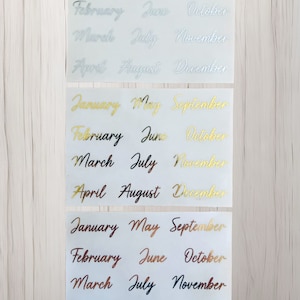 February June October
March July November
April August December
January May September
February June October
March July November
April August December
January May September
February June October
March July November